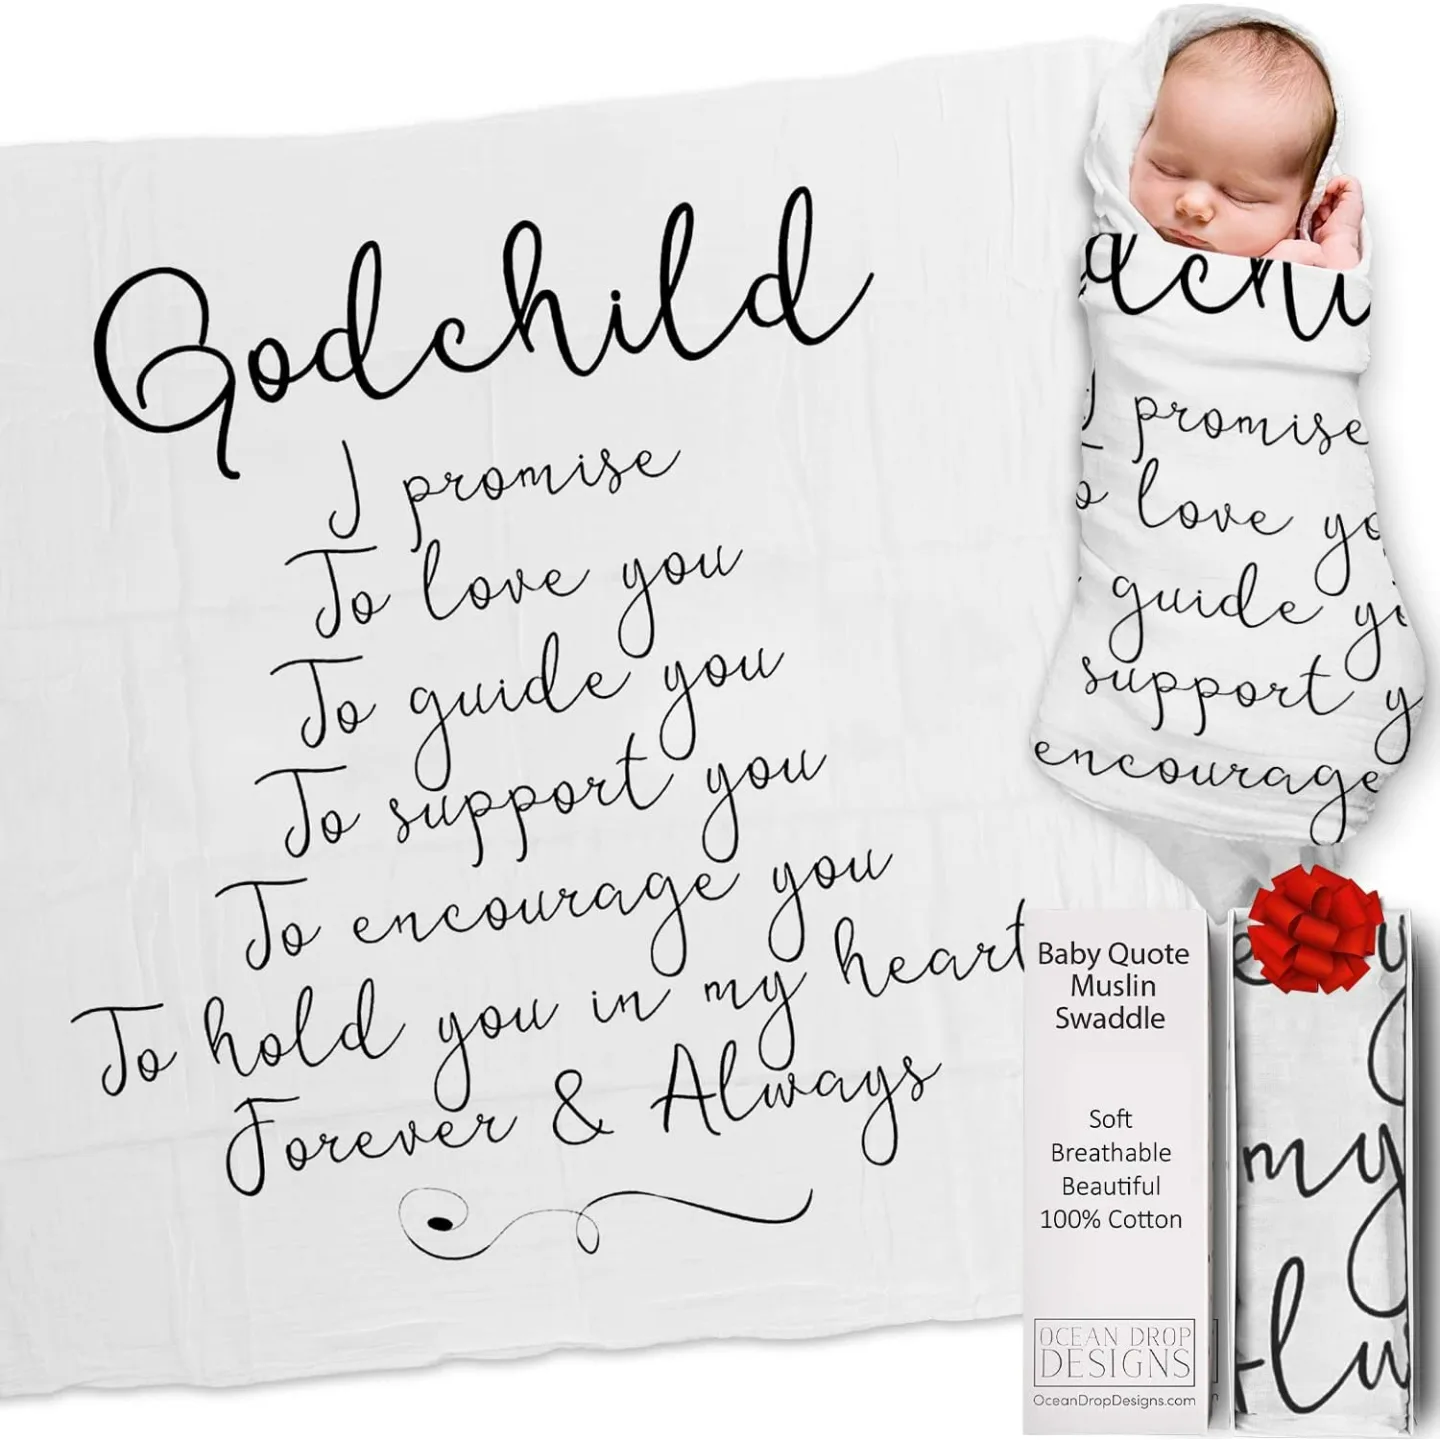 Godchild
I promise
To love you
To guide you
To support you
To encourage you
To hold you in my heart
Forever & Always
dchi
I promise
o love yo
guide y
support y
encourage
Baby Quote
Muslin
Swaddle
Soft
Breathable
Beautiful
100% Cotton
OCEAN DROP
DESIGNS
OceanDropDesigns.com
my
lw